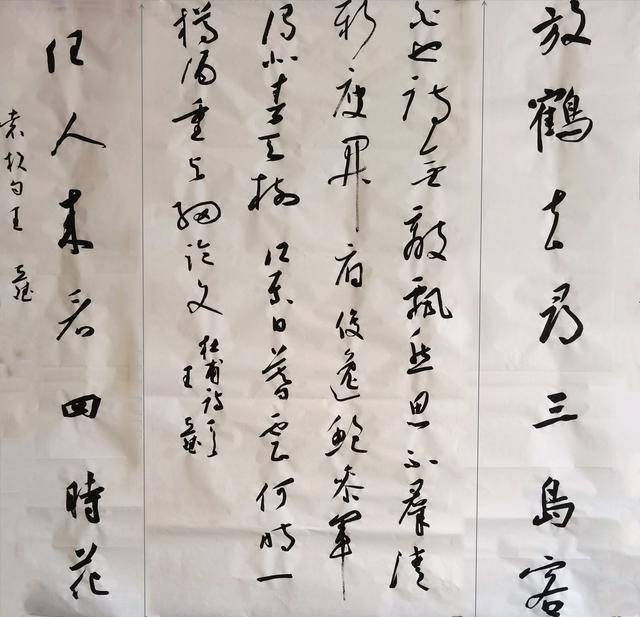 放鶴去尋三島客
白也詩無敵飄然思不羣清
新庾開府俊逸鮑參軍
渭北春天樹江東日暮雲何時一
樽酒重與細論文
杜甫詩
王
任人來看四時花
袁枚句王